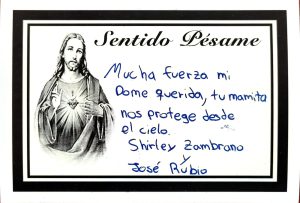 Sentido Pésame
Mucha fuerza mi
Dome querida, tu mamita
nos protege desde
el cielo.
Shirley Zambrano
y
José Rubio